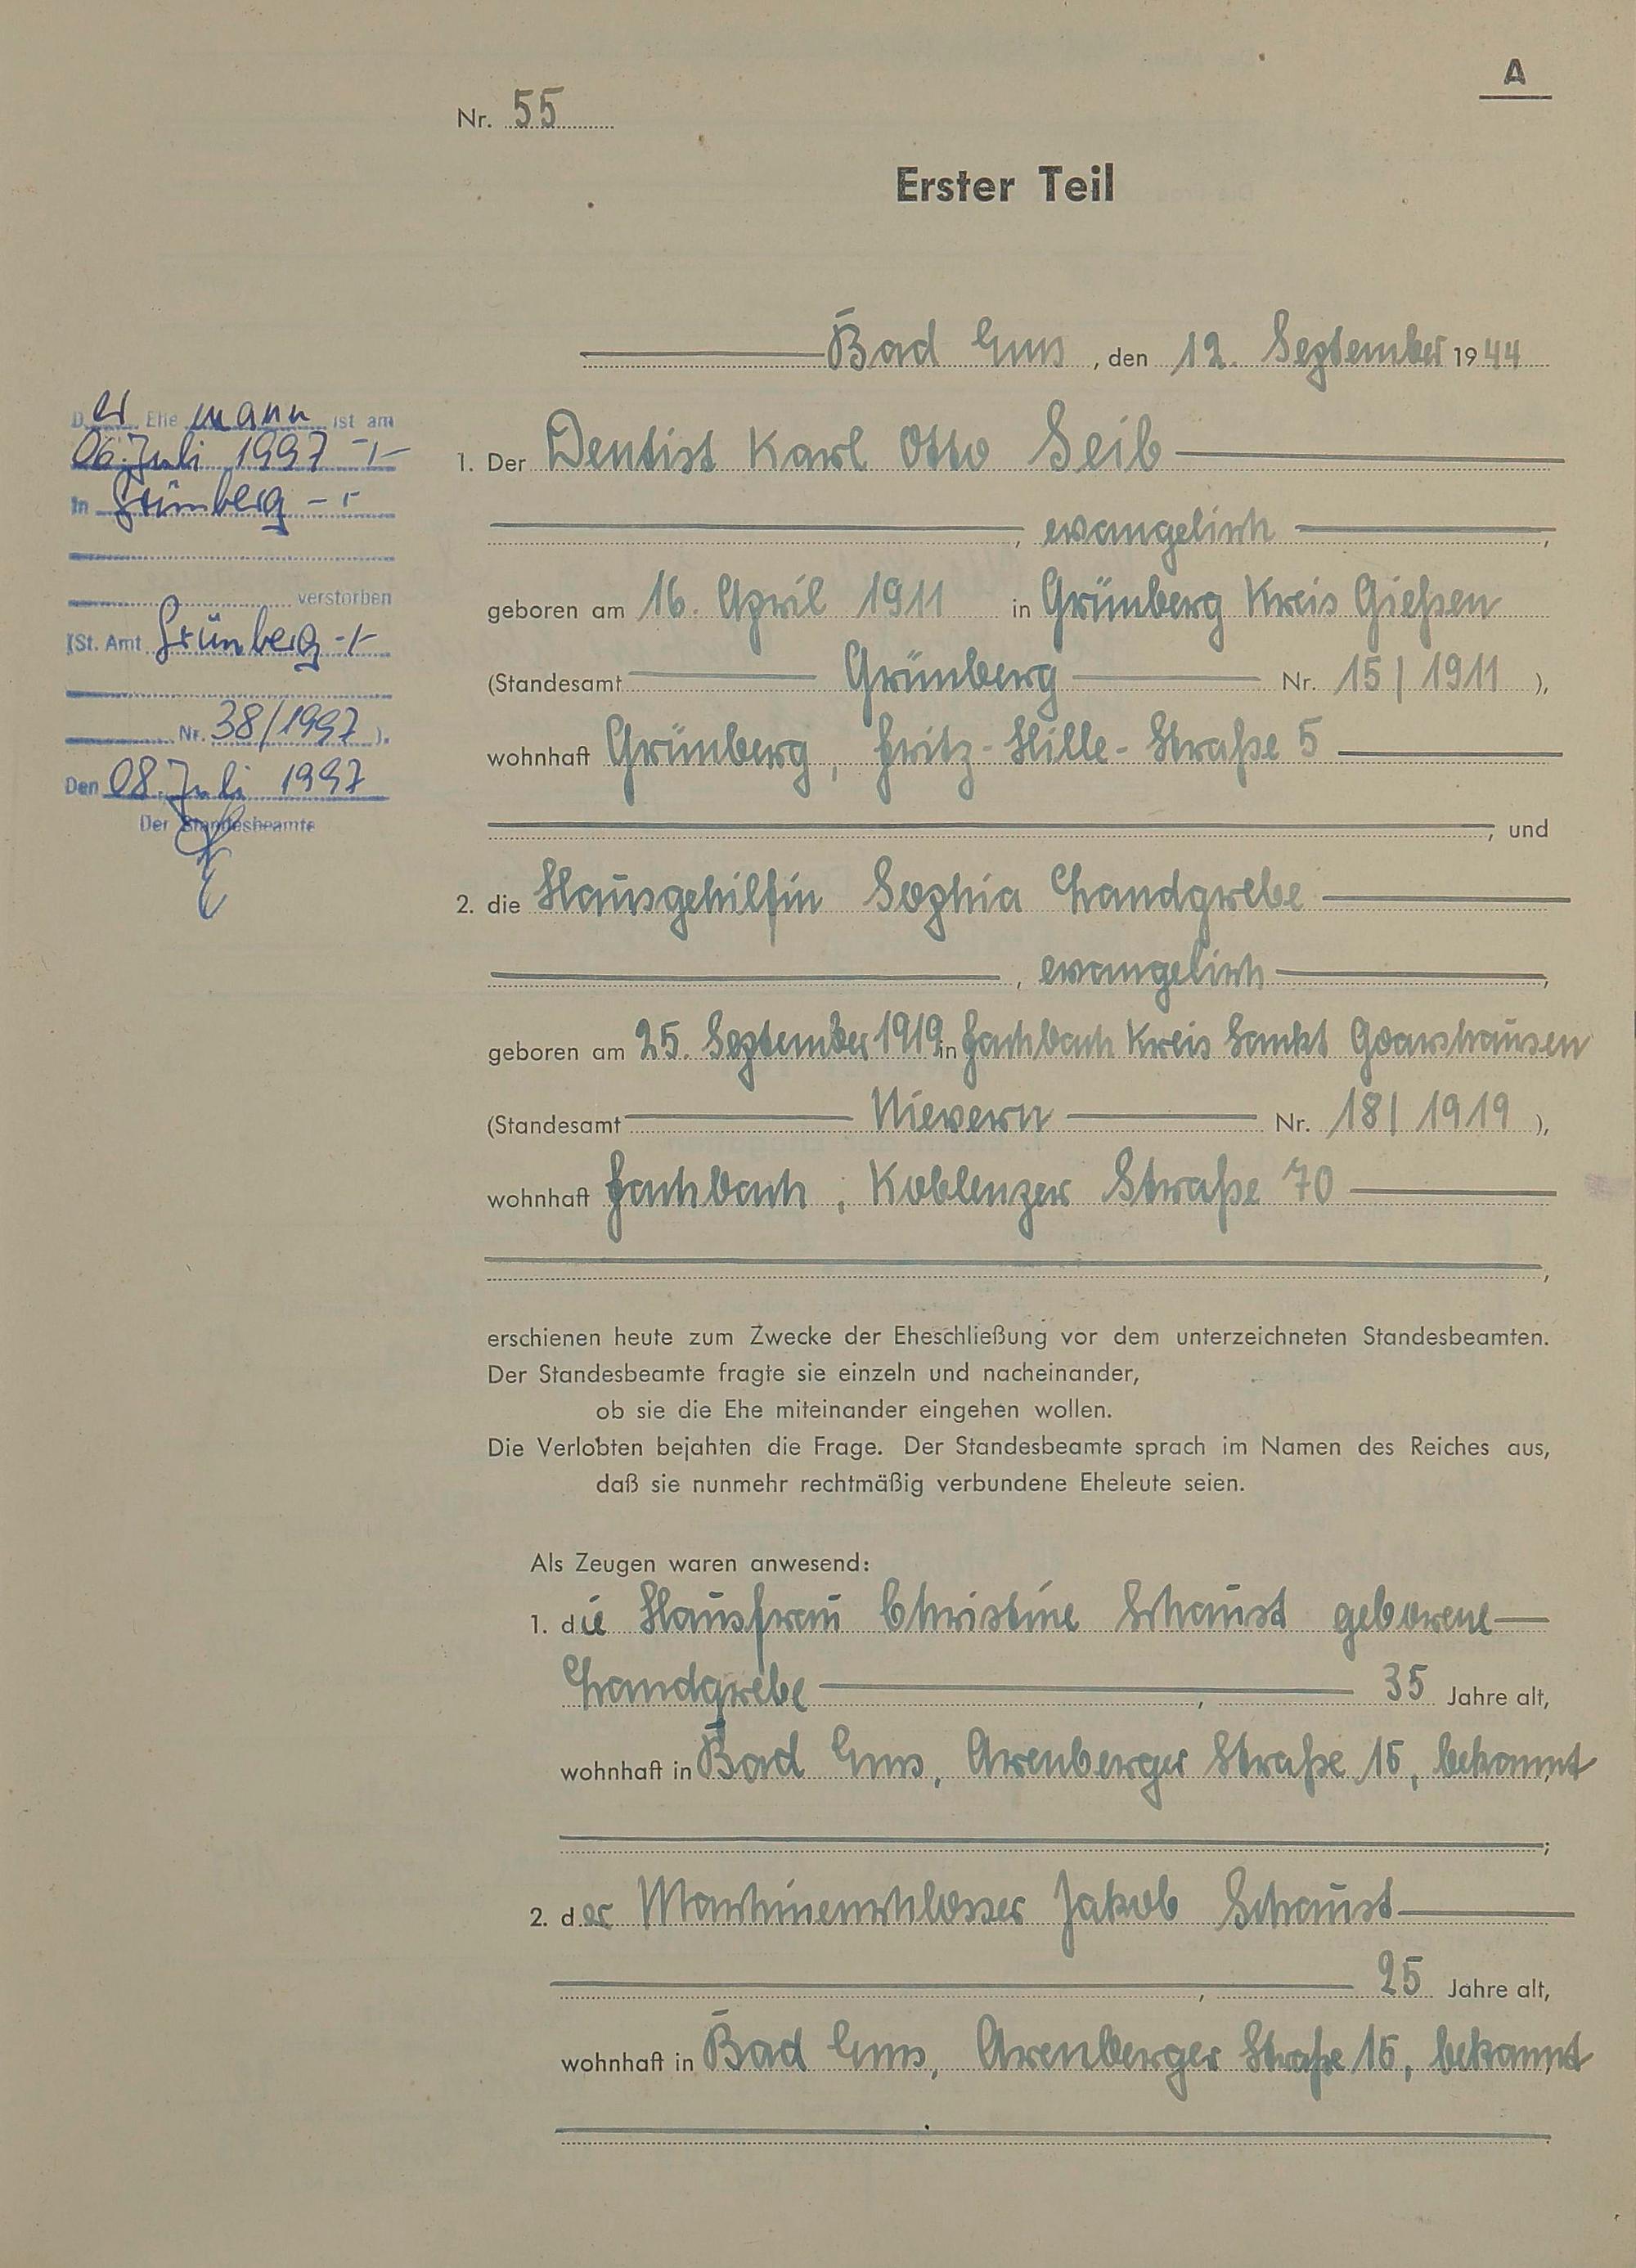 A
Nr. 55
Erster Teil
Bad Ems, den 12. September 1944
Der Ehemann ist am
06. Juli 1997 -/-
in Grünberg -/-
verstorben
(St. Amt Grünberg -/-
Nr. 38/1997 ).
Den 08. Juli 1997
Der Standesbeamte
1. Der Dentist Karl Otto Seib
, evangelisch ,
geboren am 16. April 1911 in Grünberg Kreis Gießen
(Standesamt Grünberg Nr. 15/1911 ),
wohnhaft Grünberg, Fritz-Hille-Straße 5
, und
2. die Hausgehilfin Sophia Landgrebe
, evangelisch ,
geboren am 25. September 1919 in Fachbach Kreis Sankt Goarshausen
(Standesamt Nievern Nr. 18/1919 ),
wohnhaft Fachbach, Koblenzer Straße 70
,
erschienen heute zum Zwecke der Eheschließung vor dem unterzeichneten Standesbeamten.
Der Standesbeamte fragte sie einzeln und nacheinander,
ob sie die Ehe miteinander eingehen wollen.
Die Verlobten bejahten die Frage. Der Standesbeamte sprach im Namen des Reiches aus,
daß sie nunmehr rechtmäßig verbundene Eheleute seien.
Als Zeugen waren anwesend:
1. die Hausfrau Christine Schaust geborene
Landgrebe , 35 Jahre alt,
wohnhaft in Bad Ems, Arenberger Straße 15, bekannt
;
2. der Maschinenschlosser Jakob Schaust
, 25 Jahre alt,
wohnhaft in Bad Ems, Arenberger Straße 15, bekannt
.